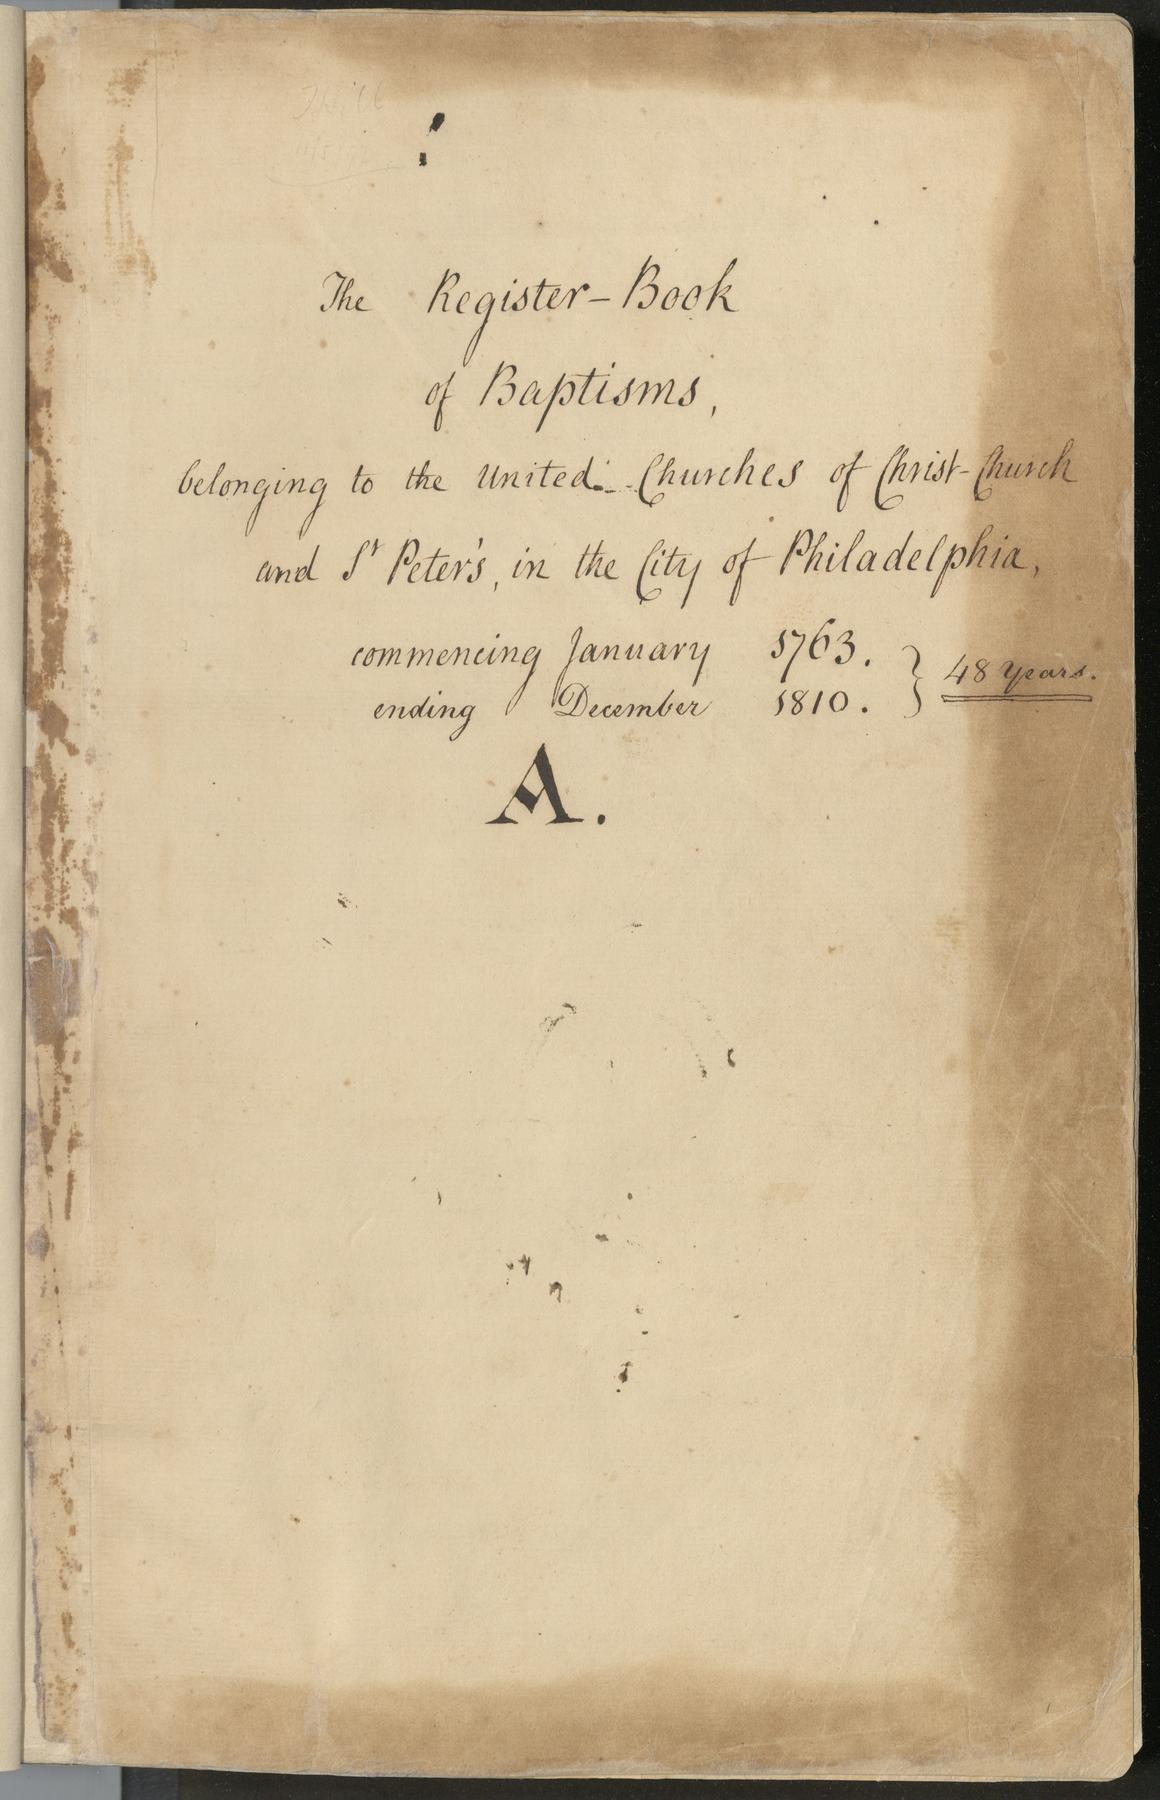 The Register-Book
of Baptisms,
belonging to the United Churches of Christ-Church
and St Peter's, in the City of Philadelphia,
commencing January 1763. } 48 Years.
ending December 1810.
A.